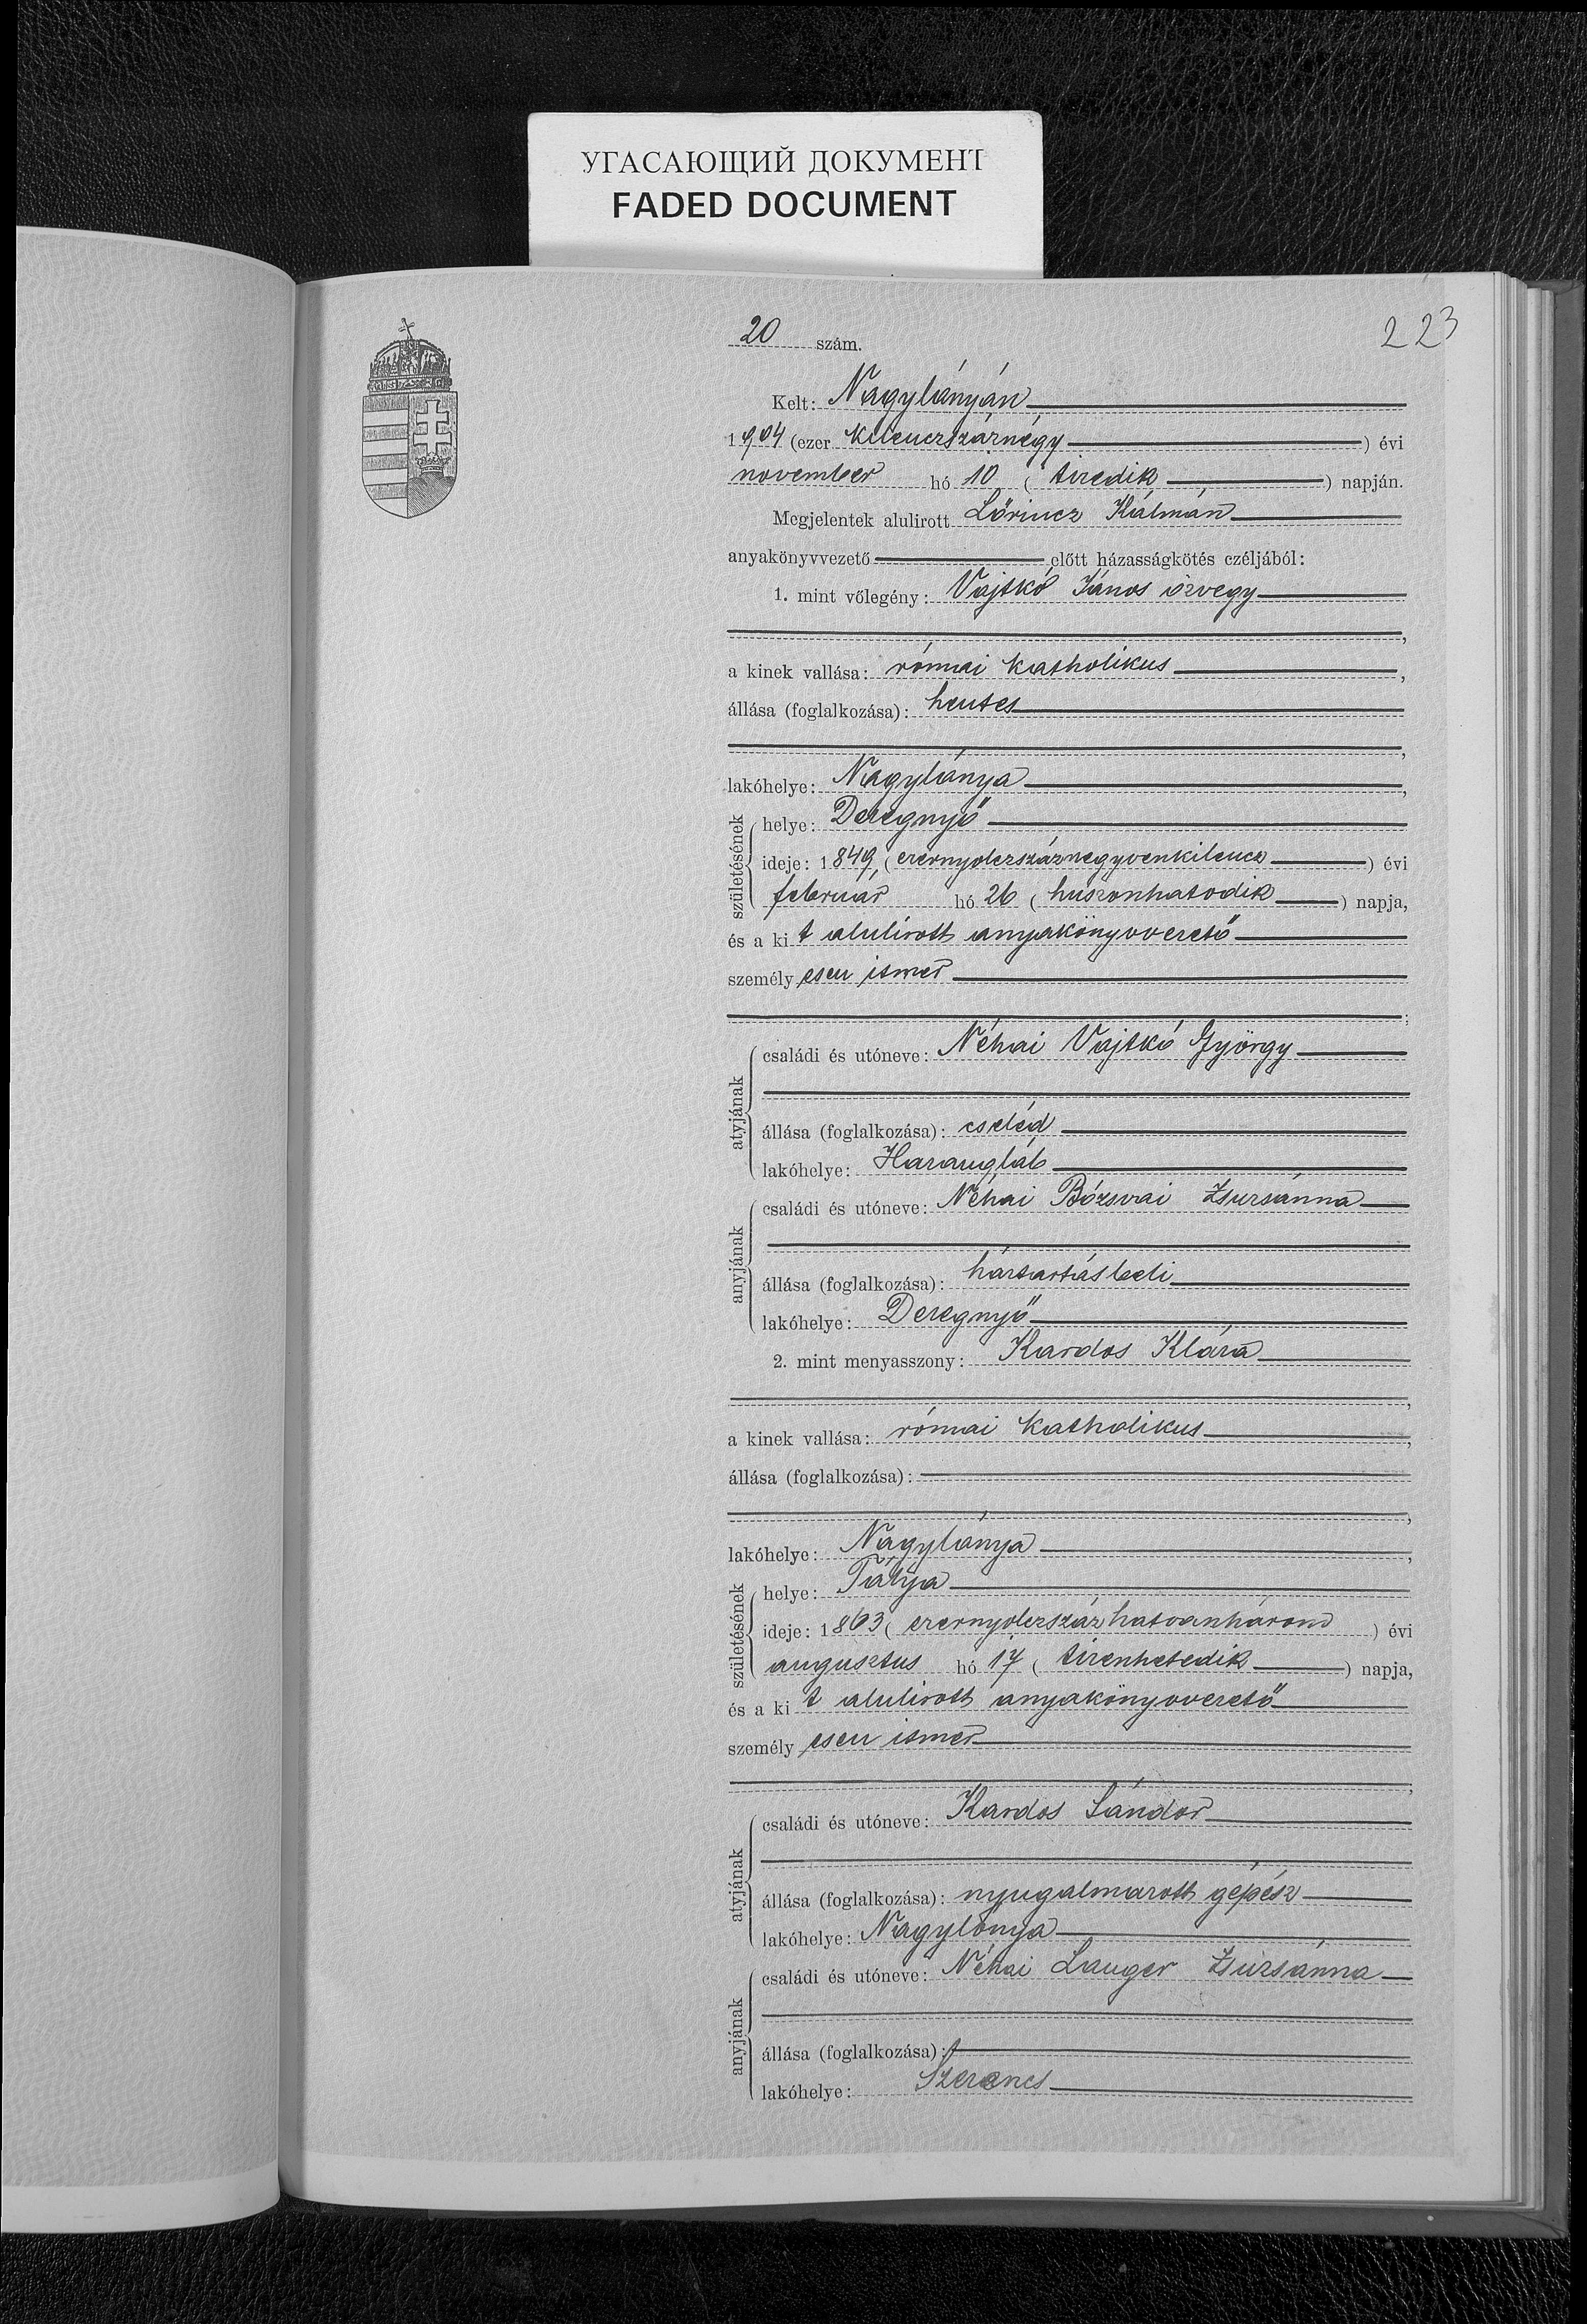 УГАСАЮЩИЙ ДОКУМЕНТ
FADED DOCUMENT
20 szám.
223
Kelt: Nagylónyán
1904 (ezer kilenczszáznégy) évi
november hó 10 (tizedik) napján.
Megjelentek alulirott Lőrincz Kálmán
anyakönyvvezető előtt házasságkötés czéljából:
1. mint vőlegény: Vajtkó János özvegy
a kinek vallása: római katholikus,
állása (foglalkozása): hentes
lakóhelye: Nagylónya,
születésének
helye: Deregnyő
ideje: 1849, (ezernyolczszáznegyvenkilencz) évi
február hó 26 (huszonhatodik) napja,
és a ki t alulírott anyakönyvvezető
személy esen ismer
atyjának
családi és utóneve: Néhai Vajtkó György
állása (foglalkozása): cseléd
lakóhelye: Harangláb
anyjának
családi és utóneve: Néhai Zsuzsánna
állása (foglalkozása): háztartásbeli
lakóhelye: Deregnyő
2. mint menyasszony: Kardos Klára
a kinek vallása: római katholikus,
állása (foglalkozása):
lakóhelye: Nagylónya,
születésének
helye: Tállya
ideje: 1863 (ezernyolczszázhatvanhárom) évi
augusztus hó 17 (tizenhetedik) napja,
és a ki t alulirott anyakönyvvezető
személy esen ismer
atyjának
családi és utóneve: Kardos Sándor
állása (foglalkozása): nyugalmazott gépész
lakóhelye: Nagylónya
anyjának
családi és utóneve: Néhai Langer Zsúzsánna
állása (foglalkozása):
lakóhelye: Szerencs